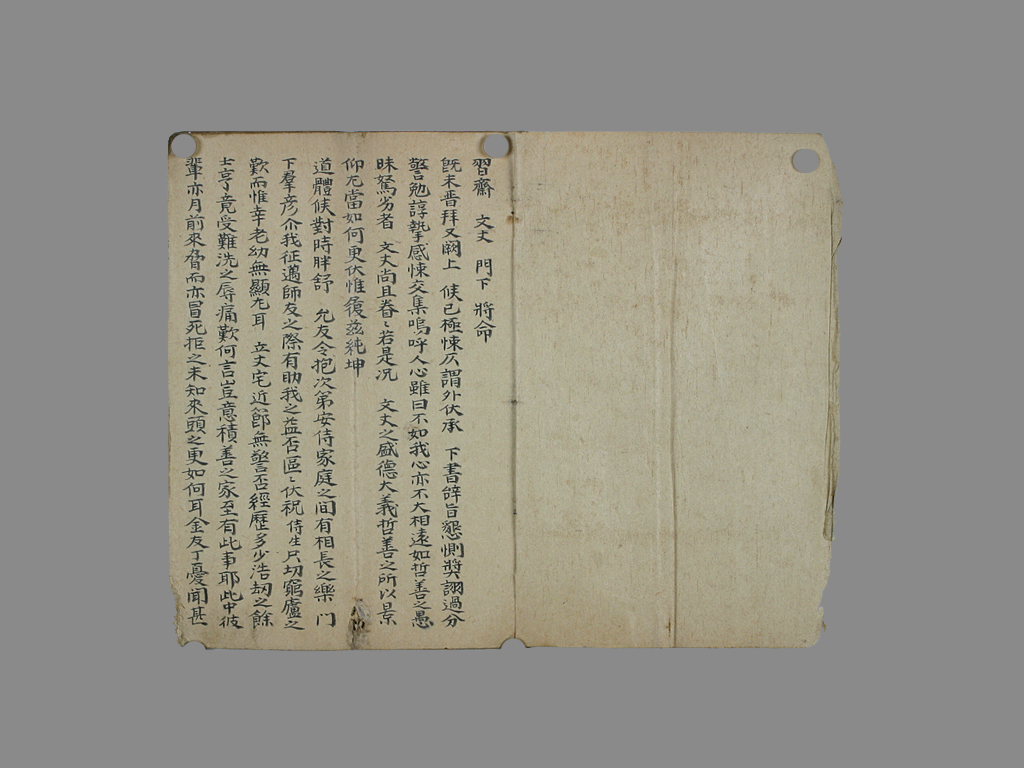 習齋 文丈 門下 將命
旣未晋拜又闕上 候已極悚仄謂外伏承 下書辭旨懇惻獎詡過分
警勉諄摯感悚交集嗚呼人心雖曰不如我心亦不大相遠如哲善之愚
昧駑劣者 文丈尚且眷〻若是况 文丈之盛德大義哲善之所以景
仰尤當如何更伏惟復玆純坤
道體候對時胖舒 允友令抱次第安侍家庭之間有相長之樂 门
下羣彦介我征邁師友之際有助我之益否區〻伏祝侍生只切窮廬之
歎而惟幸老幼無顯尤耳 立丈宅近節無警否經歷多少浩刼之餘
士亨竟受難洗之辱痛歎何言豈意積善之家至有此事耶此中彼
輩亦月前來脅而亦冒死拒之未知來頭之更如何耳金友丁憂聞甚